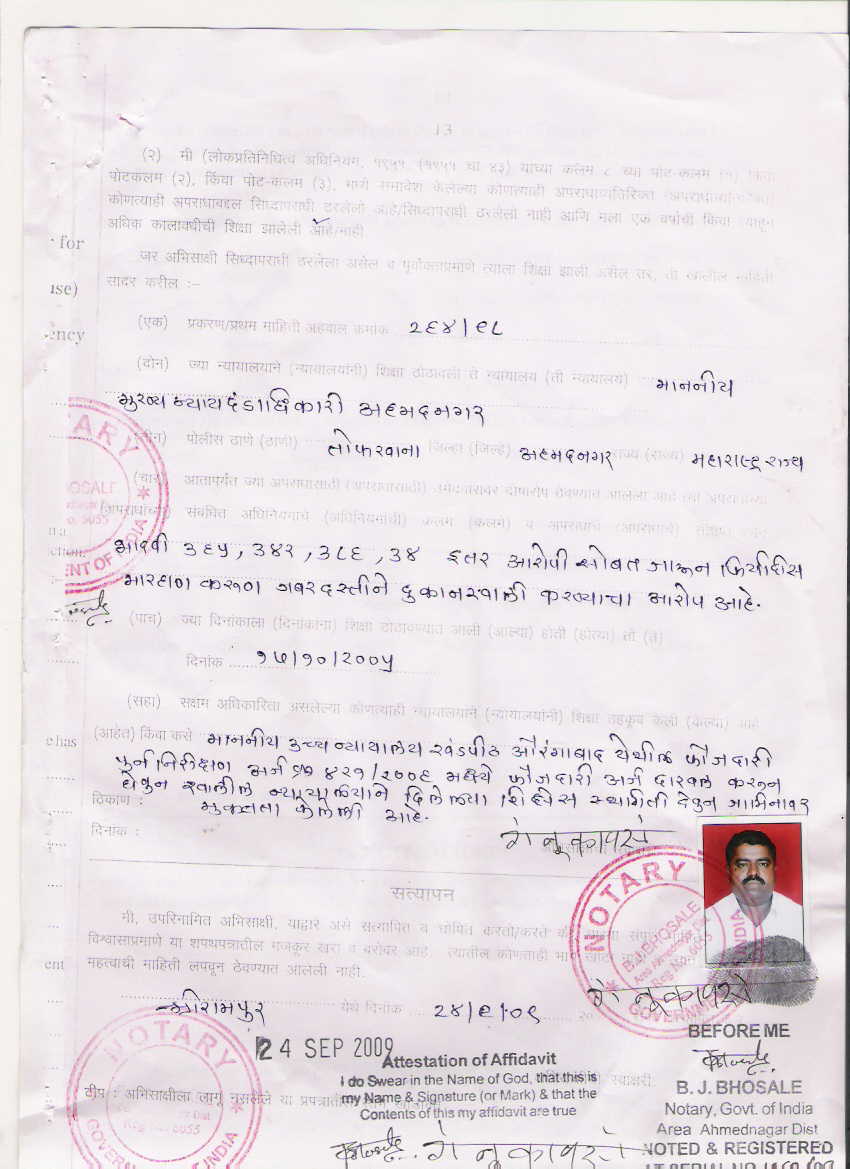 13
(२) मी (लोकप्रतिनिधित्व अधिनियम, १९५१ (१९५१ चा ४३) याच्या कलम ८ च्या पोट-कलम (१) किंवा
पोटकलम (२), किंवा पोट-कलम (३), मध्ये समावेश केलेल्या कोणत्याही
कोणत्याही अपराधाबद्दल सिध्दापराधी ठरलेलो आहे/सिध्दापराधी ठरलेलो नाही आणि मला एक वर्षाची किंवा त्याहून
अधिक कालावधीची शिक्षा झालेली आहे/नाही
for
जर अभिसाक्षी सिध्दापराधी ठरलेला असेल व पूर्वोक्ताप्रमाणे त्याला शिक्षा झाली असेल तर, तो खालील माहिती
सादर करील :-
ise)
(एक) प्रकरण/प्रथम माहिती अहवाल क्रमांक २६४/९८
ency
(दोन) ज्या न्यायालयाने (न्यायालयांनी) शिक्षा ठोठावली ते न्यायालय (ती न्यायालये) माननीय
मुख्य न्यायदंडाधिकारी अहमदनगर
(तीन) पोलीस ठाणे (ठाणी) तोफखाना जिल्हा (जिल्हे) अहमदनगर राज्य (राज्ये) महाराष्ट्र राज्य
(चार) आतापर्यंत ज्या अपराधासाठी (अपराधांसाठी) उमेदवारावर दोषारोप ठेवण्यात आलेला आहे त्या अपराधाच्या
(अपराधांच्या) संबंधित अधिनियमाचे (अधिनियमांची) कलम (कलमे) व अपराधाचे (अपराधांचे)
भादवी ३६५, ३४२, ३८६, ३४ इतर आरोपी सोबत जाऊन फिर्यादीस
मारहाण करून जबरदस्तीने दुकानखाली करण्याचा आरोप आहे.
(पाच) ज्या दिनांकाला (दिनांकांना) शिक्षा ठोठावण्यात आली (आल्या) होती (होत्या) तो (ते)
दिनांक १५/१०/२००५
(सहा) सक्षम अधिकारिता असलेल्या कोणत्याही न्यायालयाने (न्यायालयांनी) शिक्षा तहकूब केली (केल्या) आहे
e has
(आहेत) किंवा कसे माननीय उच्च न्यायालय खंडपीठ औरंगाबाद येथील फौजदारी
अर्ज ४२१/२००६ मध्ये फौजदारी अर्ज दाखल करून
घेवुन खालील दिलेल्या शिक्षेस स्थगिती देवुन जामिनावर
मुक्तता केलेली आहे.
ठिकाण :
दिनांक :
सत्यापन
मी, उपरिनामित अभिसाक्षी, याद्वारे असे सत्यापित व घोषित करतो/करते की
विश्वासाप्रमाणे या शपथपत्रातील मजकूर खरा व बरोबर आहे. त्यातील कोणताही भाग खोटा
ent
महत्वाची माहिती लपवून ठेवण्यात आलेली नाही.
श्रीरामपुर येथे दिनांक २४/९/०९
NOTARY
B. J. BHOSALE
GOVERNMENT OF INDIA
24 SEP 2009
Attestation of Affidavit
I do Swear in the Name of God, that this is
my Name & Signature (or Mark) & that the
Contents of this my affidavit are true
टीप : अभिसाक्षीला लागू नसलेले या
BEFORE ME
B. J. BHOSALE
Notary, Govt. of India
Area Ahmednagar Dist
NOTED & REGISTERED